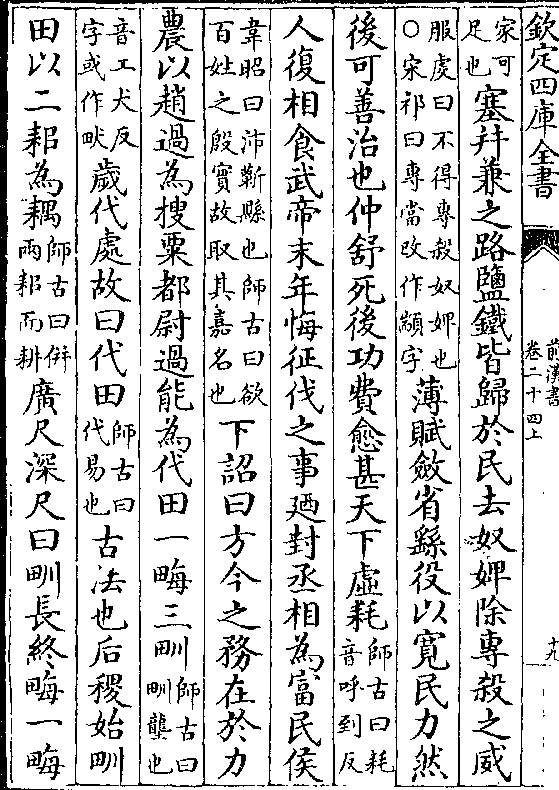 欽定四庫全書
前漢書
卷二十四上
十九
家可
足也
塞幷兼之路鹽鐵皆歸於民去奴婢除專殺之威
服䖍曰不得專殺奴婢也
○宋祁曰專當改作顓字
薄賦斂省繇役以寛民力然
後可善治也仲舒死後功費愈甚天下虛耗
師古曰耗
音呼到反
人復相食武帝末年悔征伐之事廼封丞相為富民侯
韋昭曰沛蘄縣也師古曰欲
百姓之殷實故取其嘉名也
下詔曰方今之務在於力
農以趙過為搜粟都尉過能為代田一畮三甽
師古曰
甽壟也
音工犬反
字或作畎
歲代處故曰代田
師古曰
代易也
古法也后稷始甽
田以二耜為耦
師古曰併
兩耜而耕
廣尺深尺曰甽長終畮一畮